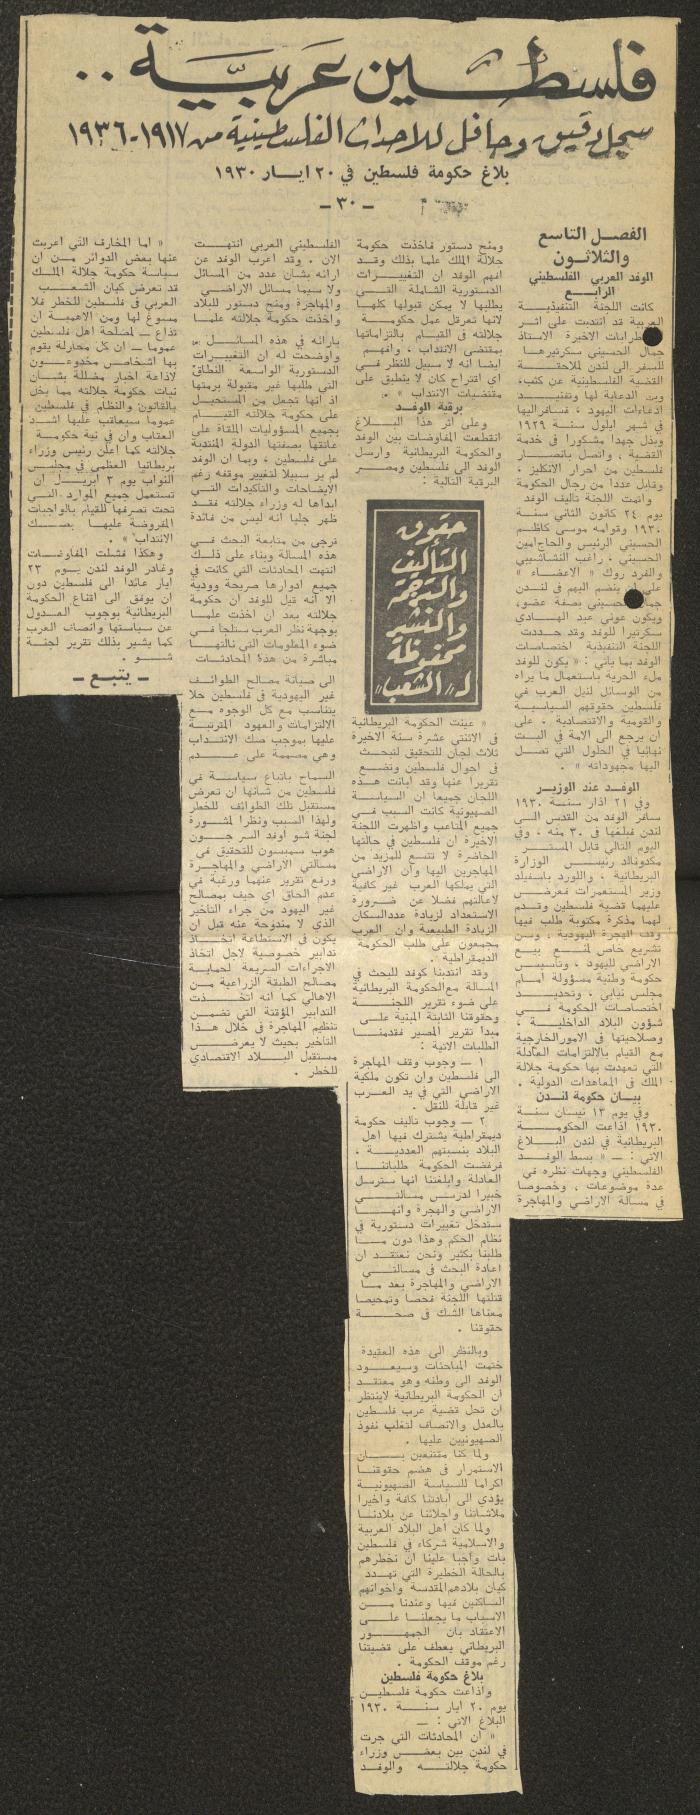 فلسطين عربية ..
سجل دقيق وحافل للاحداث الفلسطينية من ١٩١٧-١٩٣٦
بلاغ حكومة فلسطين في ٢٠ ايار ١٩٣٠
- ٣٠ -
الفصل التاسع
والثلاثون
الوفد العربي الفلسطيني
الرابع
كانت اللجنة التنفيذية
العربية قد انتدبت على اثر
الاخيرة الاستاذ
جمال الحسيني سكرتيرها
للسفر الى لندن لملاحقة
القضية الفلسطينية عن كثب،
وبث الدعاية لها وتفنيد
ادعاءات اليهود ، فسافر اليها
في شهر ايلول سنة ١٩٢٩
وبذل جهدا مشكورا في خدمة
القضية ، واتصل بانصار
فلسطين من احرار الانكليز ،
وقابل عددا من رجال الحكومة
واتمت اللجنة تاليف الوفد
يوم ٢٤ كانون الثاني سنة
١٩٣٠ وقوامه موسى كاظم
الحسيني الرئيس والحاج امين
الحسيني ، راغب النشاشيبي
والفرد روك « الاعضاء »
على ينضم اليهم في لندن
الحسيني بصفة عضو،
ويكون عوني عبد الهادي
سكرتيرا للوفد وقد حددت
اللجنة التنفيذية اختصاصات
الوفد بما ياتي : « يكون للوفد
ملء الحرية باستعمال ما يراه
من الوسائل لنيل العرب في
فلسطين حقوقهم السياسية
والقومية والاقتصادية . على
ان يرجع الى الامة في البت
نهائيا في الحلول التي تصل
اليها مجهوداته » .
الوفد عند الوزير
وفي ٢١ اذار سنة ١٩٣٠
سافر الوفد من القدس الى
لندن فبلغها في ٣٠ منه ، وفي
اليوم التالي قابل المستر
مكدونالد رئيس الوزارة
البريطانية ، واللورد باسفيلد
وزير المستعمرات فعرض
عليهما قضية فلسطين وقدم
لهما مذكرة مكتوبة طلب فيها
وقف الهجرة اليهودية ، وسن
تشريع خاص لمنع بيع
الاراضي لليهود ، وتاسيس
حكومة وطنية مسؤولة امام
مجلس نيابي ، وتحديد
اختصاصات الحكومة في
شؤون البلاد الداخلية ،
وصلاحيتها في الامور الخارجية
مع القيام بالالتزامات العادلة
التي تعهدت بها حكومة جلالة
الملك في المعاهدات الدولية .
بيان حكومة لندن
وفي يوم ١٣ نيسان سنة
١٩٣٠ اذاعت الحكومة
البريطانية في لندن البلاغ
الاتي : — « بسط الوفد
الفلسطيني وجهات نظره في
عدة موضوعات ، وخصوصا
في مسالة الاراضي والمهاجرة
ومنح دستور فاخذت حكومة
جلالة الملك علما بذلك وقد
افهم الوفد ان التغييرات
الدستورية الشاملة التي
يطلبها لا يمكن قبولها كلها
لانها تعرقل عمل حكومة
جلالته في القيام بالتزاماتها
بمقتضى الانتداب ، وافهم
ايضا انه لا سبيل للنظر في
اي اقتراح كان لا ينطبق على
مقتضيات الانتداب » .
برقية الوفد
وعلى اثر هذا البلاغ
انقطعت المفاوضات بين الوفد
والحكومة البريطانية وارسل
الوفد الى فلسطين ومصر
البرقية التالية :
حقوق
التأليف
والترجمة
والنشر
محفوظة
لـ « الشعب »
« عينت الحكومة البريطانية
في الاثنتي عشرة سنة الاخيرة
ثلاث لجان للتحقيق لتبحث
في احوال فلسطين وتضع
تقريرا عنها وقد ابانت هذه
اللجان جميعا ان السياسة
الصهيونية كانت السبب في
جميع المتاعب واظهرت اللجنة
الاخيرة ان فلسطين في حالتها
الحاضرة لا تتسع للمزيد من
المهاجرين اليها وان الاراضي
التي يملكها العرب غير كافية
لاعالتهم فضلا عن ضرورة
الاستعداد لزيادة عدد السكان
الزيادة الطبيعية وان العرب
مجمعون على طلب الحكومة
الديمقراطية .
وقد انتدبنا كوفد للبحث في
المسالة مع الحكومة البريطانية
على ضوء تقرير اللجنة
وحقوقنا الثابتة المبنية على
مبدا تقرير المصير فقدمنا
الطلبات الاتية :
١ — وجوب وقف المهاجرة
الى فلسطين وان تكون ملكية
الاراضي التي في يد العرب
غير قابلة للنقل .
٢ — وجوب تاليف حكومة
ديمقراطية يشترك فيها اهل
البلاد بنسبتهم العددية ،
فرفضت الحكومة طلباتنا
العادلة وابلغتنا انها سترسل
خبيرا لدرس مسالتي
الاراضي والهجرة وانها
ستدخل تغييرات دستورية في
نظام الحكم وهذا دون ما
طلبنا بكثير ونحن نعتقد ان
اعادة البحث في مسالتي
الاراضي والمهاجرة بعد ما
قتلتها اللجنة فحصا وتمحيصا
معناها الشك في صحة
حقوقنا .
وبالنظر الى هذه العقيدة
ختمت المباحثات وسيعود
الوفد الى وطنه وهو معتقد
ان الحكومة البريطانية لا ينتظر
ان تحل قضية عرب فلسطين
بالعدل والانصاف لتغلب نفوذ
الصهيونيين عليها .
ولما كنا مقتنعين بان
الاستمرار في هضم حقوقنا
اكراما للسياسة الصهيونية
يؤدي الى ابادتنا كافة واخيرا
ملاشاتنا واجلائنا عن بلادنا
ولما كان اهل البلاد العربية
والاسلامية شركاء في فلسطين
بات واجبا علينا ان نخطرهم
بالحالة الخطيرة التي تهدد
كيان بلادهم المقدسة واخوانهم
الساكنين فيها وعندنا من
الاسباب ما يجعلنا على
الاعتقاد بان الجمهور
البريطاني يعطف على قضيتنا
رغم موقف الحكومة .
بلاغ حكومة فلسطين
واذاعت حكومة فلسطين
يوم ٢٠ ايار سنة ١٩٣٠
البلاغ الاتي : —
« ان المحادثات التي جرت
في لندن بين بعض وزراء
حكومة جلالته والوفد
الفلسطيني العربي انتهت
الان . وقد اعرب الوفد عن
ارائه بشان عدد من المسائل
ولا سيما مسائل الاراضي
والمهاجرة ومنح دستور للبلاد
واخذت حكومة جلالته علما
بارائه في هذه المسائل
واوضحت له ان التغييرات
الدستورية الواسعة النطاق
التي طلبها غير مقبولة برمتها
اذ انها تجعل من المستحيل
على حكومة جلالته القيام
بجميع المسؤوليات الملقاة على
عاتقها بصفتها الدولة المنتدبة
على فلسطين ، وبما ان الوفد
لم ير سبيلا لتغيير موقفه رغم
الايضاحات والتاكيدات التي
ابداها له وزراء جلالته فقد
ظهر جليا انه ليس من فائدة
ترجى من متابعة البحث في
هذه المسالة وبناء على ذلك
انتهت المحادثات التي كانت في
جميع ادوارها صريحة وودية
الا انه قيل للوفد ان حكومة
جلالته بعد ان اخذت علما
بوجهة نظر العرب ستلجا في
ضوء المعلومات التي نالتها
مباشرة من هذه المحادثات
الى صيانة مصالح الطوائف
غير اليهودية في فلسطين حلا
يتناسب مع كل الوجوه مع
الالتزامات والعهود المترتبة
عليها بموجب صك الانتداب
وهي مصممة على عدم
السماح باتباع سياسة في
فلسطين من شانها ان تعرض
مستقبل تلك الطوائف للخطر
ولهذا السبب ونظرا لمشورة
لجنة شو اوفد السر جون
هوب سمبسون للتحقيق في
مسالتي الاراضي والمهاجرة
ورفع تقرير عنهما ورغبة في
عدم الحاق اي حيف بمصالح
غير اليهود من جراء التاخير
الذي لا مندوحة عنه قبل ان
يكون في الاستطاعة اتخاذ
تدابير خصوصية لاجل اتخاذ
الاجراءات السريعة لحماية
مصالح الطبقة الزراعية من
الاهالي كما انه اتخذت
التدابير المؤقتة التي تضمن
تنظيم المهاجرة في خلال هذا
التاخير بحيث لا يعرض
مستقبل البلاد الاقتصادي
للخطر .
« اما المخاوف التي اعربت
عنها بعض الدوائر من ان
سياسة حكومة جلالة الملك
قد تعرض كيان الشعب
العربي في فلسطين للخطر فلا
مسوغ لها ومن الاهمية ان
تذاع — لمصلحة اهل فلسطين
عموما — ان كل محاولة يقوم
بها اشخاص مخدوعون
لاذاعة اخبار مضللة بشان
نيات حكومة جلالته مما يخل
بالقانون والنظام في فلسطين
عموما سيعاقب عليها اشد
العقاب وان في نية حكومة
جلالته كما اعلن رئيس وزراء
بريطانيا العظمى في مجلس
النواب يوم ٣ ابريل ان
تستعمل جميع الموارد التي
تحت تصرفها للقيام بالواجبات
المفروضة عليها بصك
الانتداب » .
وهكذا فشلت المفاوضات
وغادر الوفد لندن يوم ٢٣
ايار عائدا الى فلسطين دون
ان يوفق الى اقناع الحكومة
البريطانية بوجوب العدول
عن سياستها وانصاف العرب
كما يشير بذلك تقرير لجنة
شو .
— يتبع —